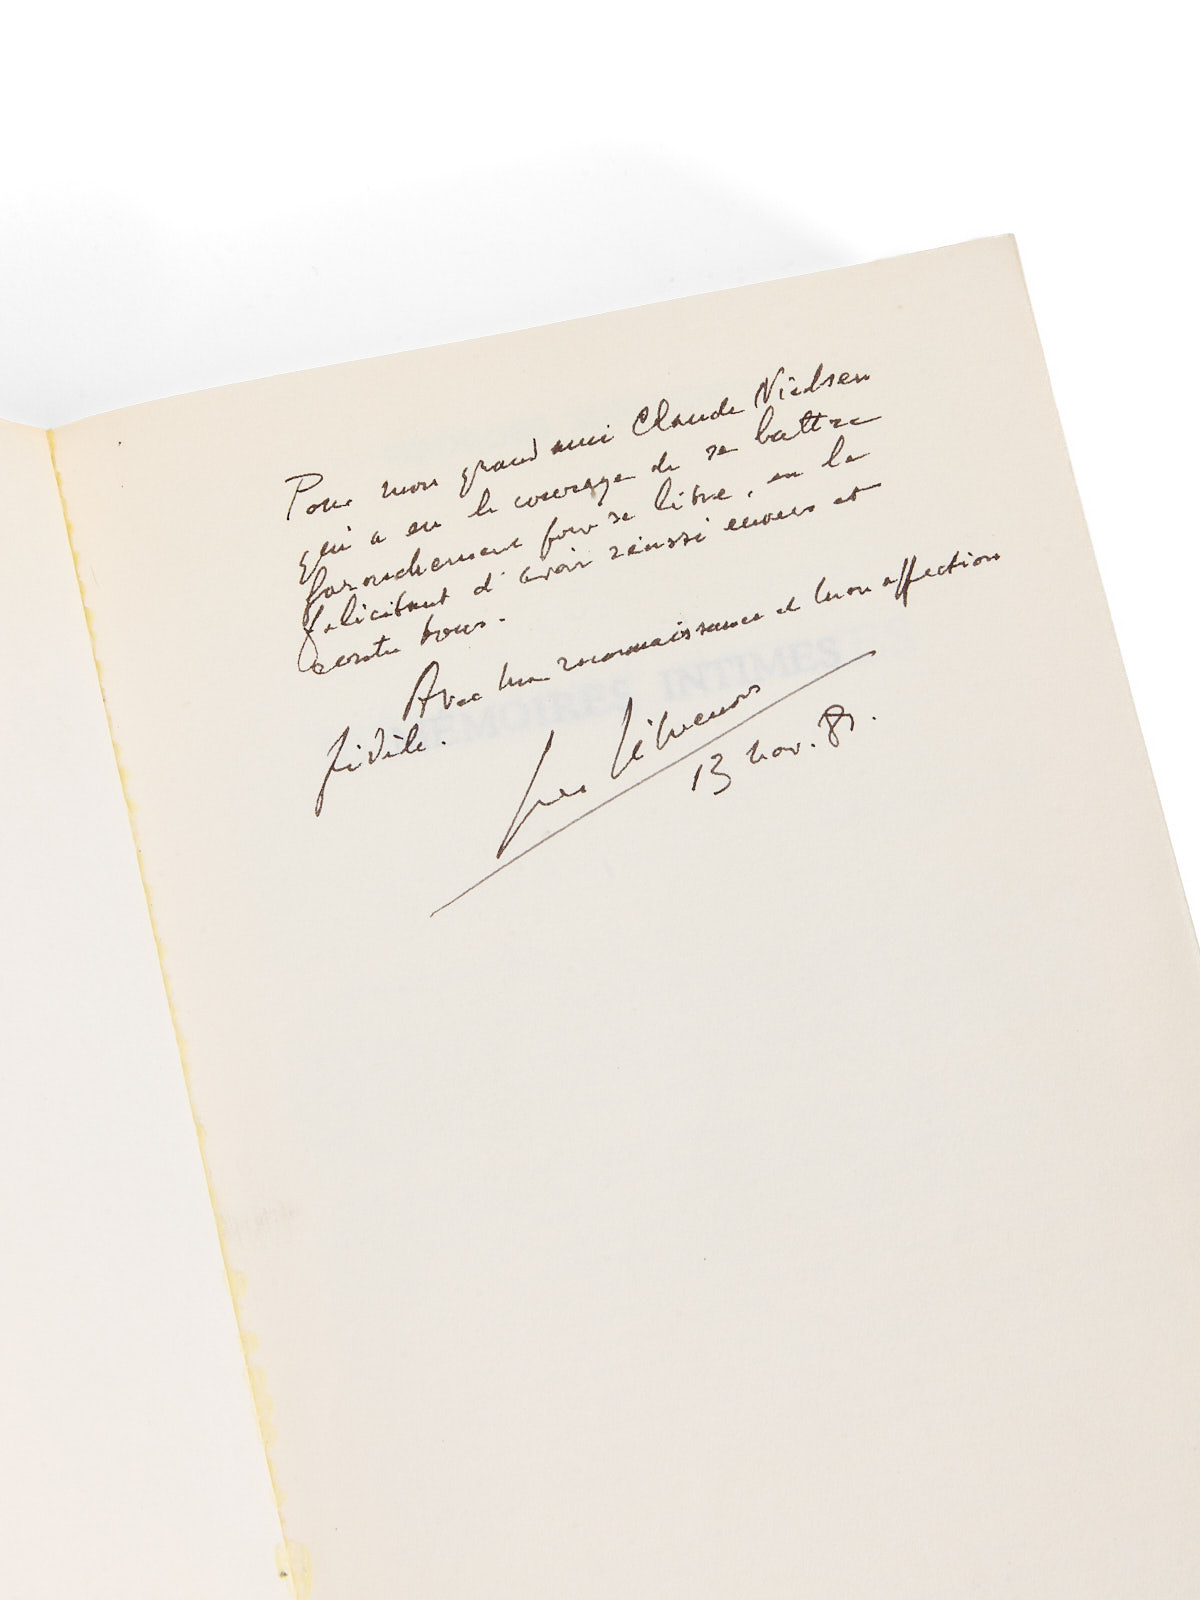 Pour mon grand ami Claude Nielsen
qui a eu le courage de se battre
farouchement pour ce livre, en le
félicitant d'avoir réussi envers et
contre tous.
Avec ma reconnaissance et mon affection
fidèle.
MÉMOIRES INTIMES
Georges Simenon
13 nov. 81.